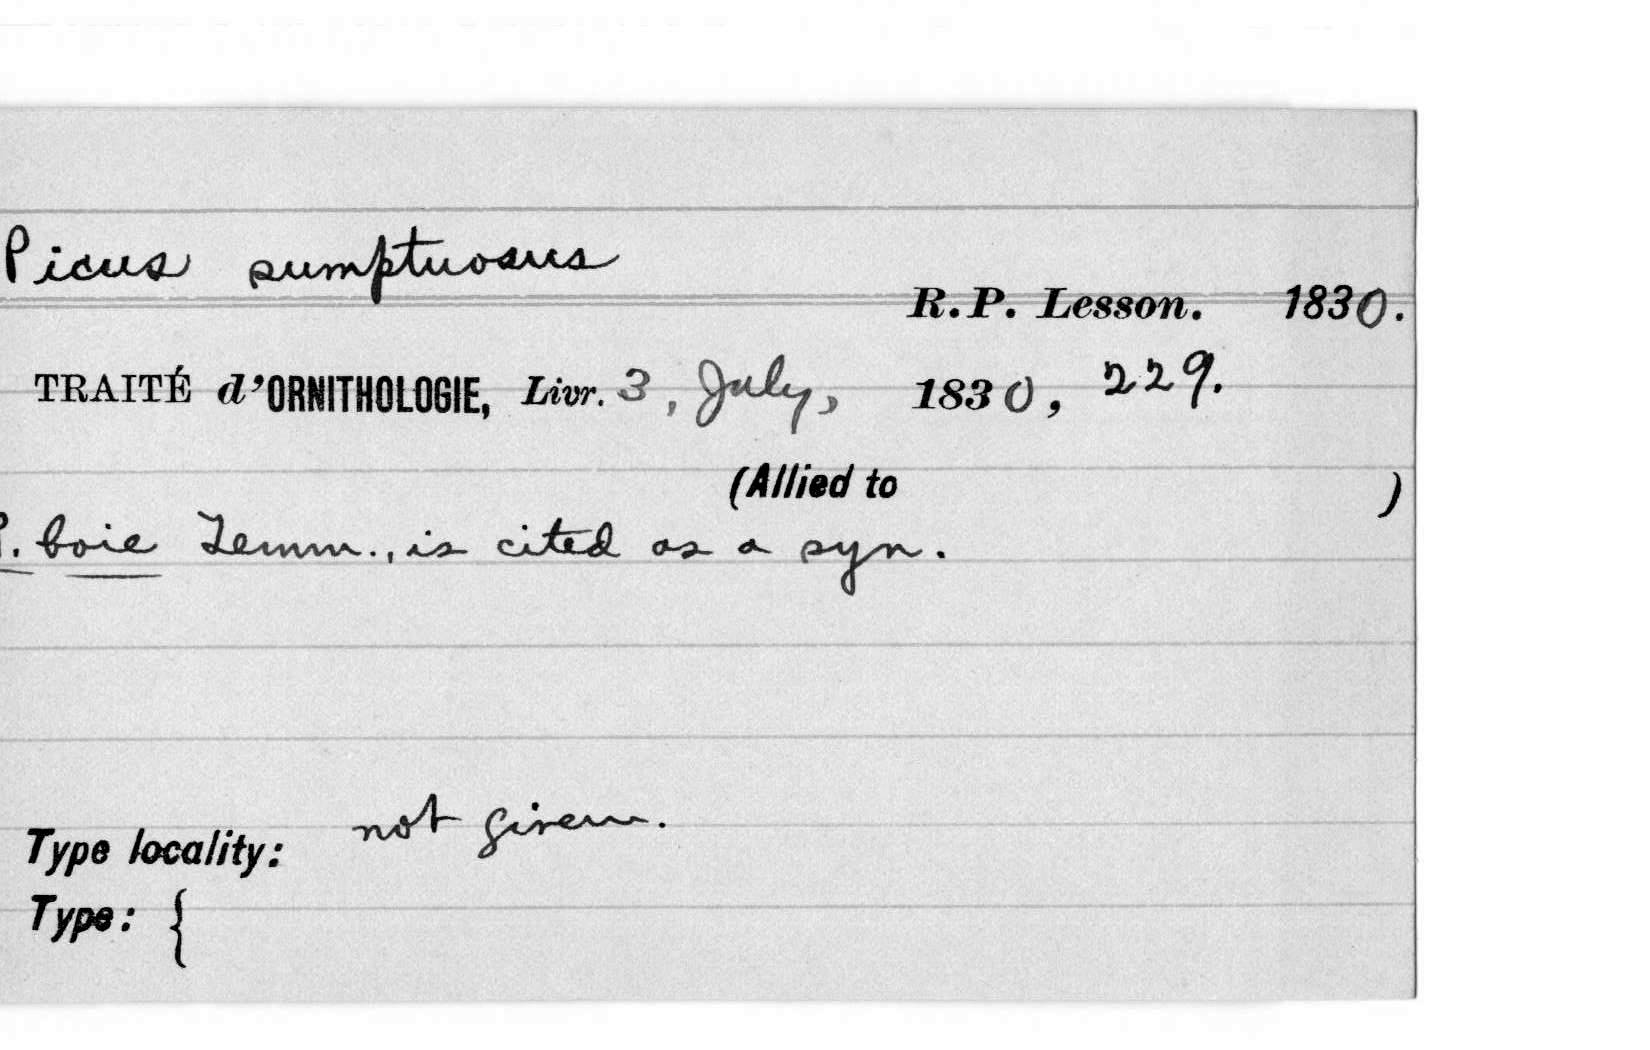 Picus sumptuosus
R.P. Lesson. 1830.
TRAITÉ d'ORNITHOLOGIE, Livr. 3, July, 1830, 229.
(Allied to )
P. boie Temm., is cited as a syn.
Type locality: not given.
Type: {